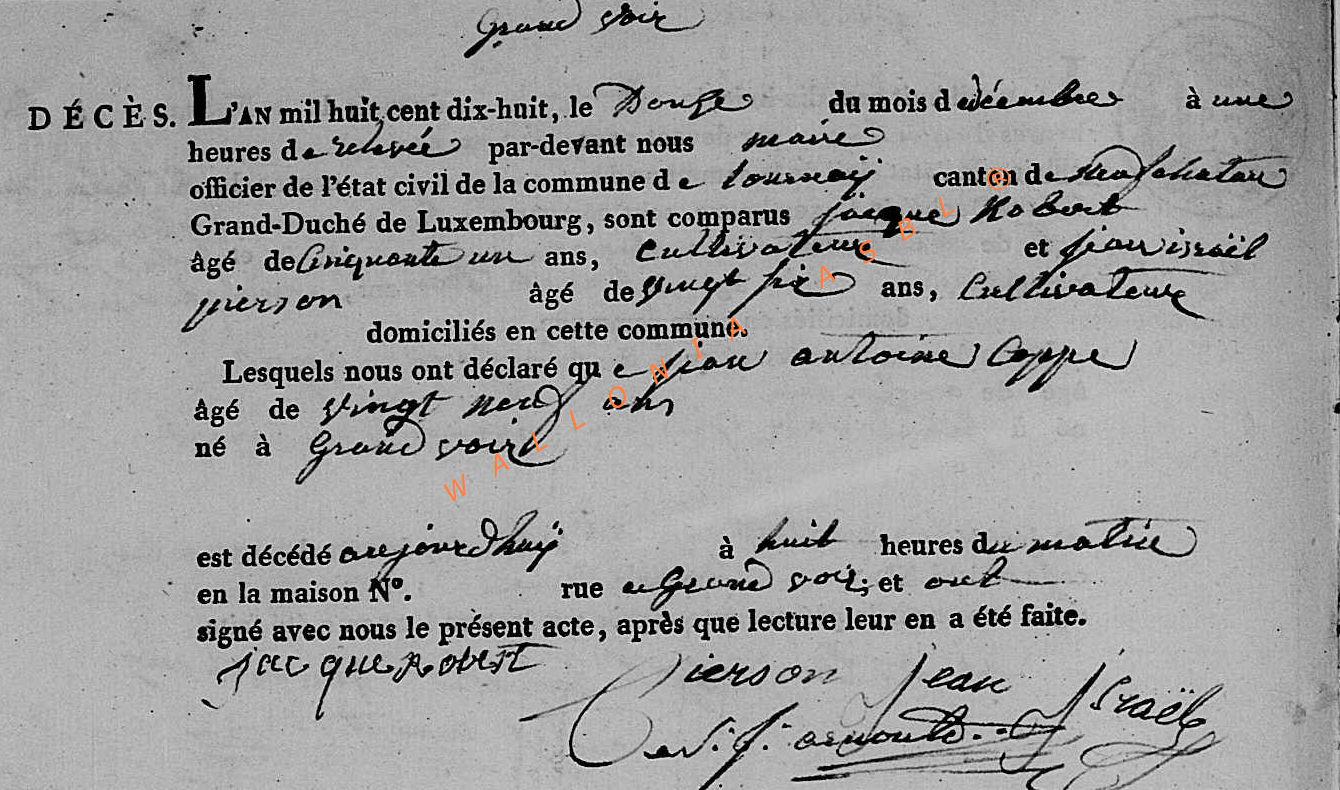 Grand voir
DÉCÈS. L'AN mil huit cent dix-huit, le Douze du mois de décembre à une
heures de relevée par-devant nous maire
officier de l'état civil de la commune de tournaÿ canton de Neufchateau
Grand-Duché de Luxembourg, sont comparus jacque Robert
âgé de Cinquante un ans, Cultivateur et jean israël
pierson âgé de vingt six ans, Cultivateur
domiciliés en cette commune.
Lesquels nous ont déclaré que jean antoine Coppe
âgé de vingt neuf ans
né à Grand voir
est décédé aujourd'huÿ à huit heures du matin
en la maison N°. rue a Grand voir; et ont
signé avec nous le présent acte, après que lecture leur en a été faite.
jacque Robert pierson jean Israël
WALLONIA ASBL ©